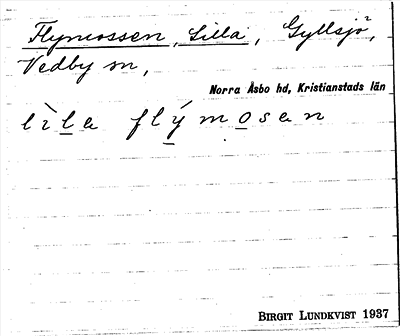 Flymossen, Lilla, Gyllsjö,
Vedby sn,
Norra Åsbo hd, Kristianstads län
lìla flýmosen
BIRGIT LUNDKVIST 1937